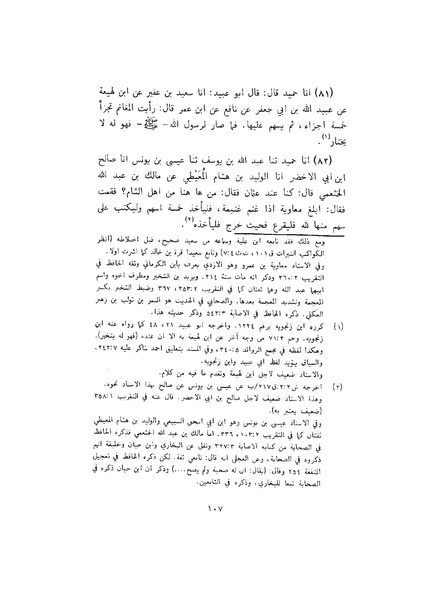 (٨١) انا حميد قال: قال ابو عبيد: انا سعيد بن عفير عن ابن لهيعة
عن عبيد الله بن ابي جعفر عن نافع عن ابن عمر قال: رأيت المغانم تجزأ
خمسة اجزاء، ثم يسهم عليها. فما صار لرسول الله -ﷺ- فهو له لا
يختار(١).
(٨٢) انا حميد ثنا عبد الله بن يوسف ثنا عيسى بن يونس انا صالح
ابن ابي الاخضر انا الوليد بن هشام المُعَيْطِي عن مالك بن عبد الله
الخثعمي قال: كنا عند عثمان فقال: من ها هنا من اهل الشام؟ فقمت
فقال: ابلغ معاوية اذا غنم غنيمة، فليأخذ خمسة اسهم وليكتب على
سهم منها لله فليقرع فحيث خرج فليأخذه(٢).
ومع ذلك فقد تابعه ابن علية وسماعه من سعيد صحيح، قبل اختلاطه (انظر
الكواكب النيرات ق١٠١، ت ت ٤: ٧) وتابع سعيدا قرة بن خالد كما اشرت اولا.
وفي الاسناد معاوية بن عمرو وهو الازدي يعرف بابن الكرماني وثقه الحافظ في
التقريب ٢: ٢٦٠ وذكر انه مات سنة ٢١٤. ويزيد بن الشخير ومطرف اخوه واسم
ابيهما عبد الله وهما ثقتان كما في التقريب ٢: ٢٥٣، ٣٦٧ وضبط الشخير بكسر
المعجمة وتشديد المعجمة بعدها. والصحابي في الحديث هو النمر بن تولب بن زهير
العكلي. ذكره الحافظ في الاصابة ٣: ٥٤٢ وذكر حديثه هذا.
(١) كرره ابن زنجويه برقم ١٢٢٤. واخرجه ابو عبيد ٢١، ٤٨ كما رواه عنه ابن
زنجويه. وحم ٢: ٧١ من وجه آخر عن ابن لهيعة به الا ان عنده (فهو له يتخير).
وهكذا لفظه في مجمع الزوائد ٥: ٣٤٠. وفي المسند بتعليق احمد شاكر عليه ٧: ٢٤٢
والسياق يؤيد لفظ ابي عبيد وابن زنجويه.
والاسناد ضعيف لاجل ابن لهيعة وتقدم ما فيه من كلام.
(٢) اخرجه ش ٢: ٣: ق٢١٧/ب عن عيسى بن يونس عن صالح بهذا الاسناد نحوه.
وهذا الاسناد ضعيف لاجل صالح بن ابي الاخضر. قال عنه في التقريب ١: ٣٥٨
(ضعيف يعتبر به).
وفي الاسناد عيسى بن يونس وهو ابن ابي اسحق السبيعي والوليد بن هشام المعيطي
ثقتان كما في التقريب ٢: ١٠٣، ٣٣٦. اما مالك بن عبد الله الخثعمي فذكره الحافظ
في الصحابة من كتابه الاصابة ٣: ٣٢٧ ونقل عن البخاري وابن حبان وخليفة انهم
ذكروه في الصحابة، وعن العجلي انه قال: تابعي ثقة. لكن ذكره الحافظ في تعجيل
المنفعة ٢٥٤ وقال: (يقال: ان له صحبة ولم يصح....) وذكر أن ابن حبان ذكره في
الصحابة تبعا للبخاري، وذكره في التابعين.
١٠٧